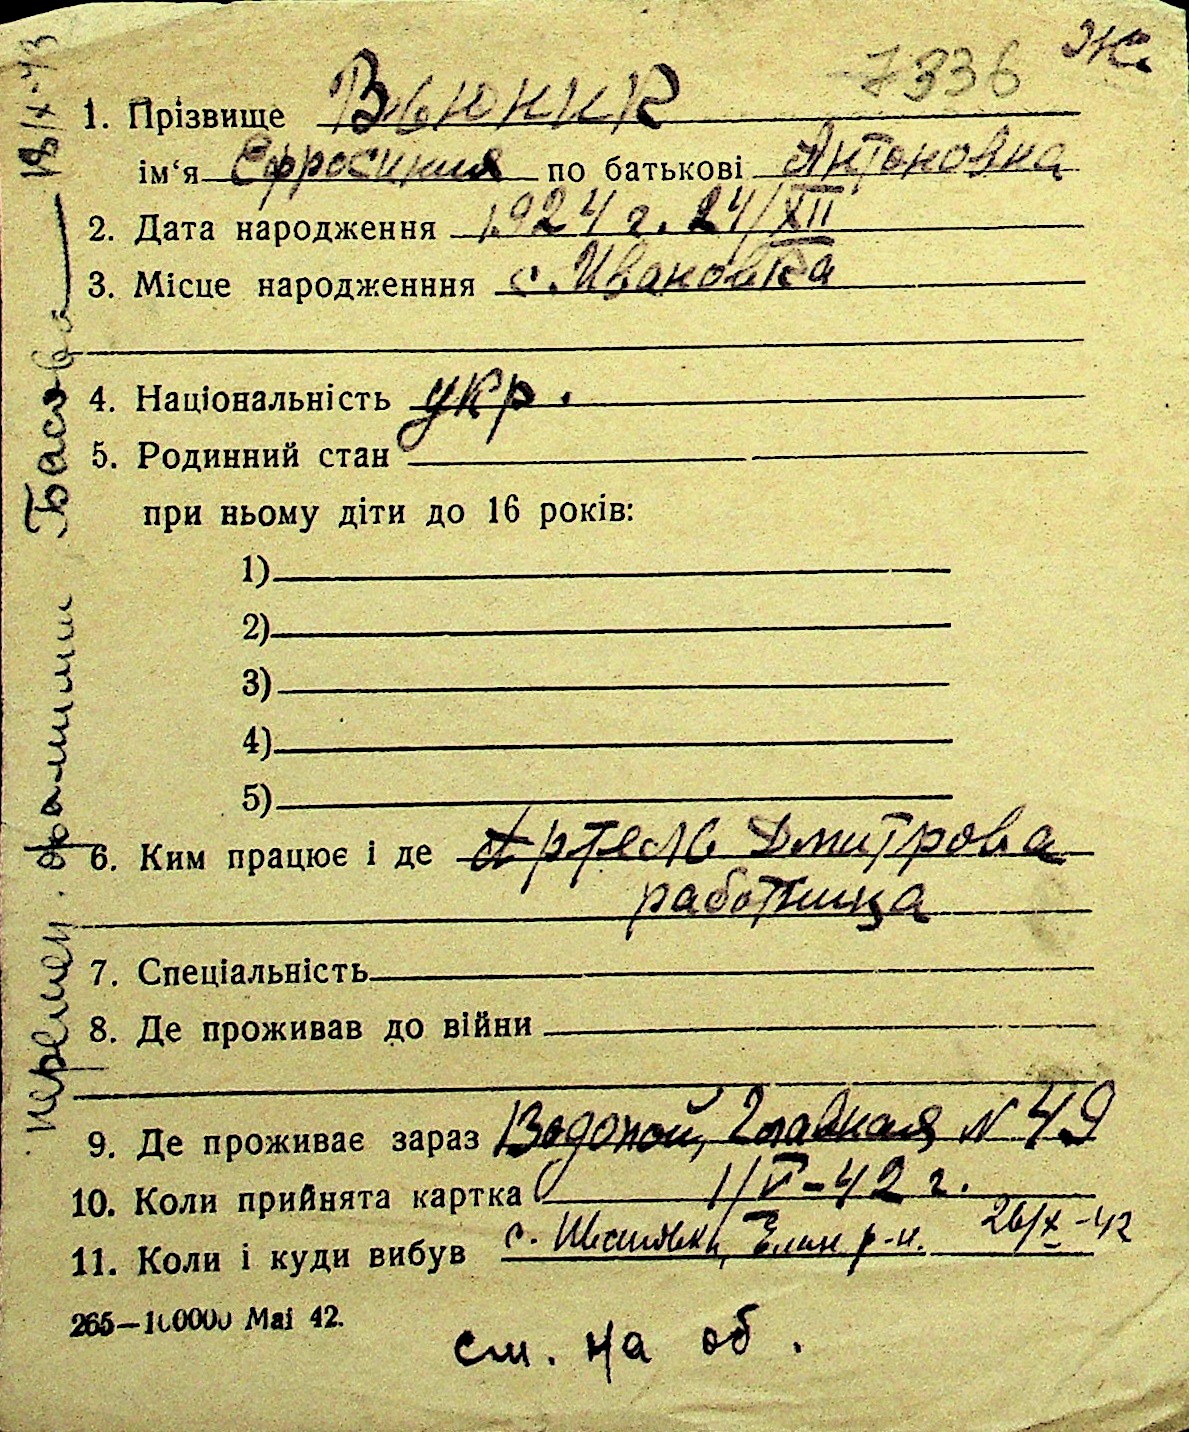 7336 Ж.
1. Прізвище Вьюник
ім‘я Ефросиния по батькові Антоновна
2. Дата народження 1924 г. 24/XII
3. Місце народженння с. Ивановка
4. Національність укр.
5. Родинний стан
при ньому діти до 16 років:
1)
2)
3)
4)
5)
6. Ким працює і де Артель Дмитрова
работница
7. Спеціальність
8. Де проживав до війни
9. Де проживає зараз Водопой, Главная N 49
10. Коли прийнята картка 1/V-42 г.
11. Коли і куди вибув с. р-н. 26/X-42
265—100000 Маі 42.
см. на об.
перемен. фамилии Басова 18/X-43